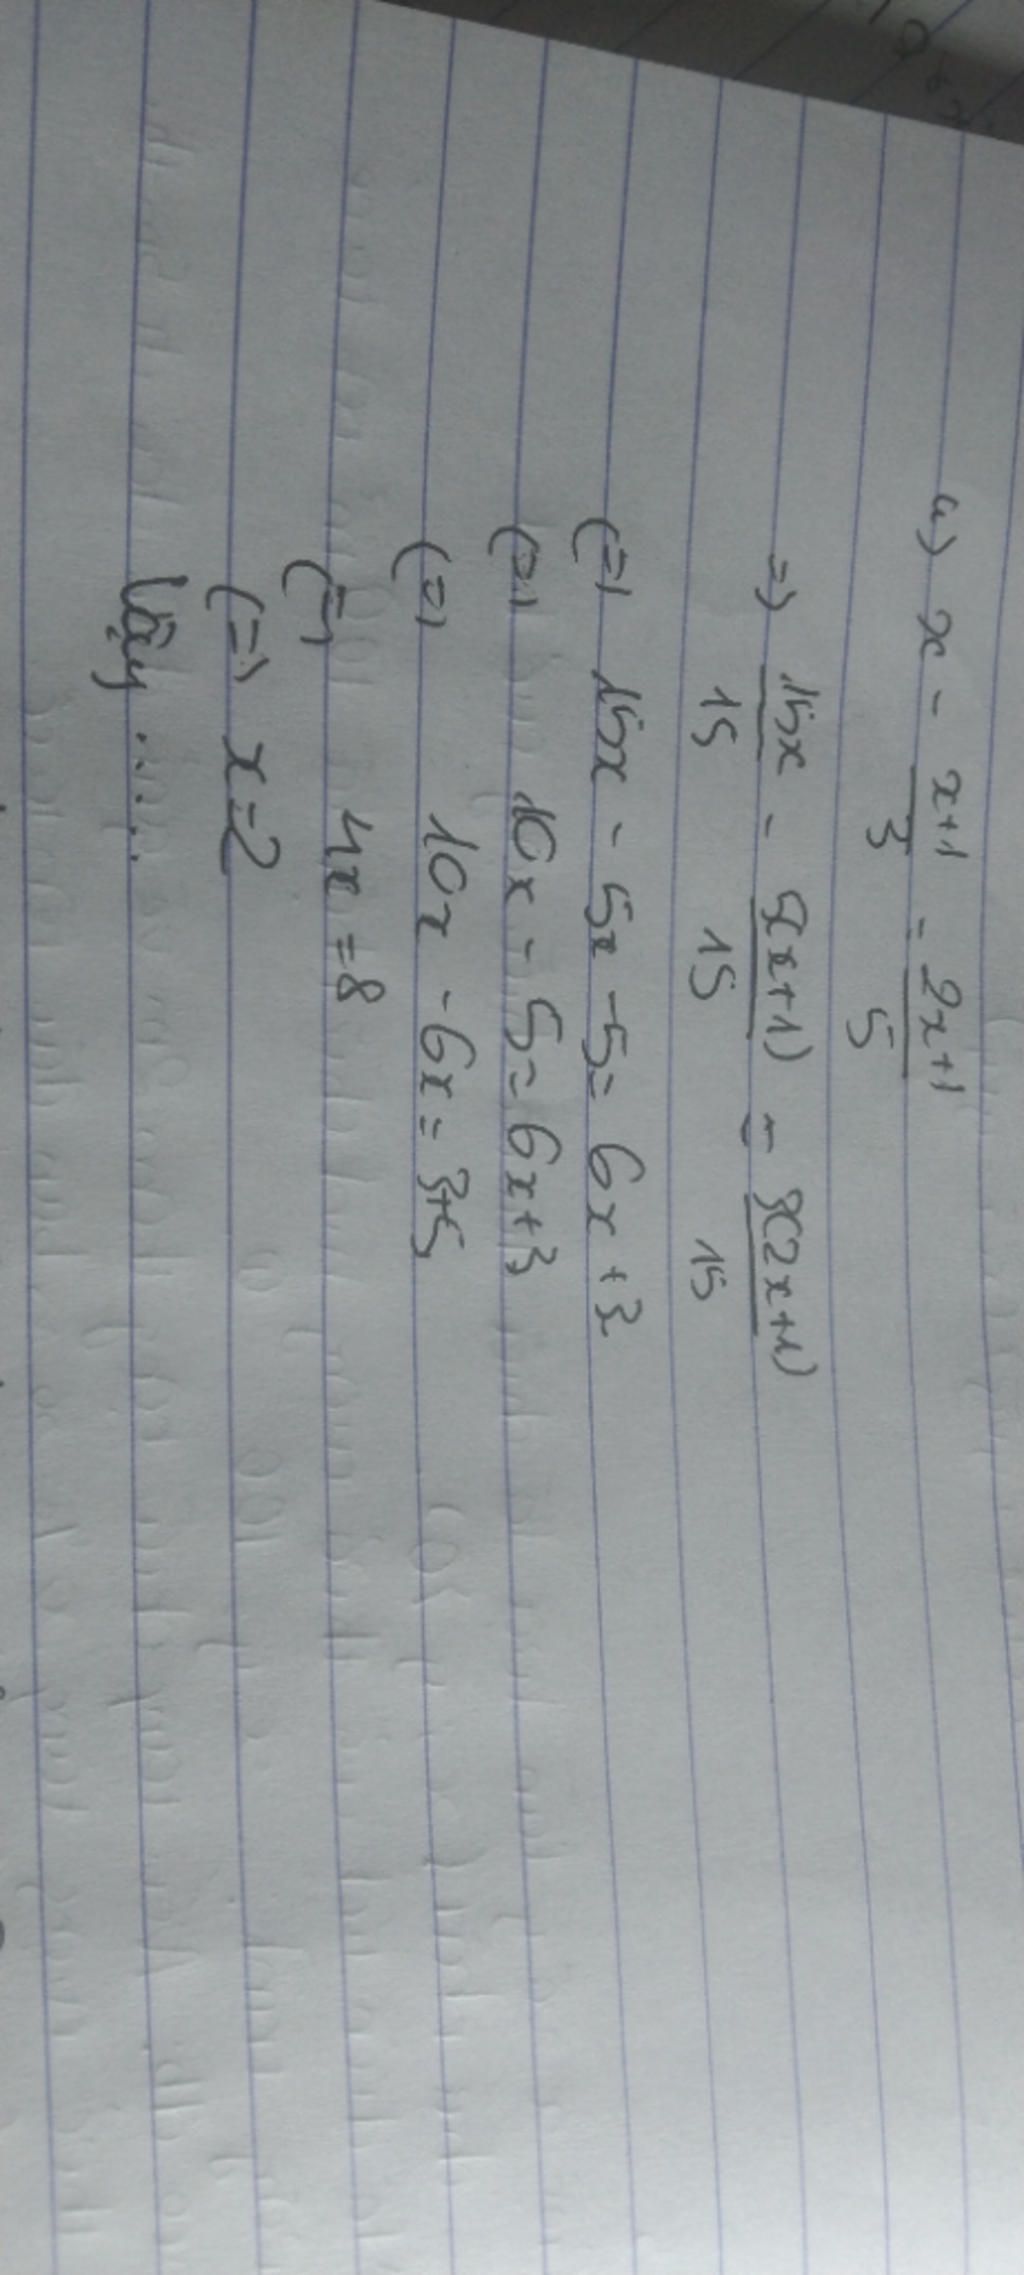 a) x - \frac{x+1}{3} = \frac{2x+1}{5}
=> \frac{15x}{15} - \frac{5(x+1)}{15} = \frac{3(2x+1)}{15}
(=) 15x - 5x - 5 = 6x + 3
(=) 10x - 5 = 6x + 3
(=) 10x - 6x = 3+5
(=) 4x = 8
(=) x = 2
Vậy .....